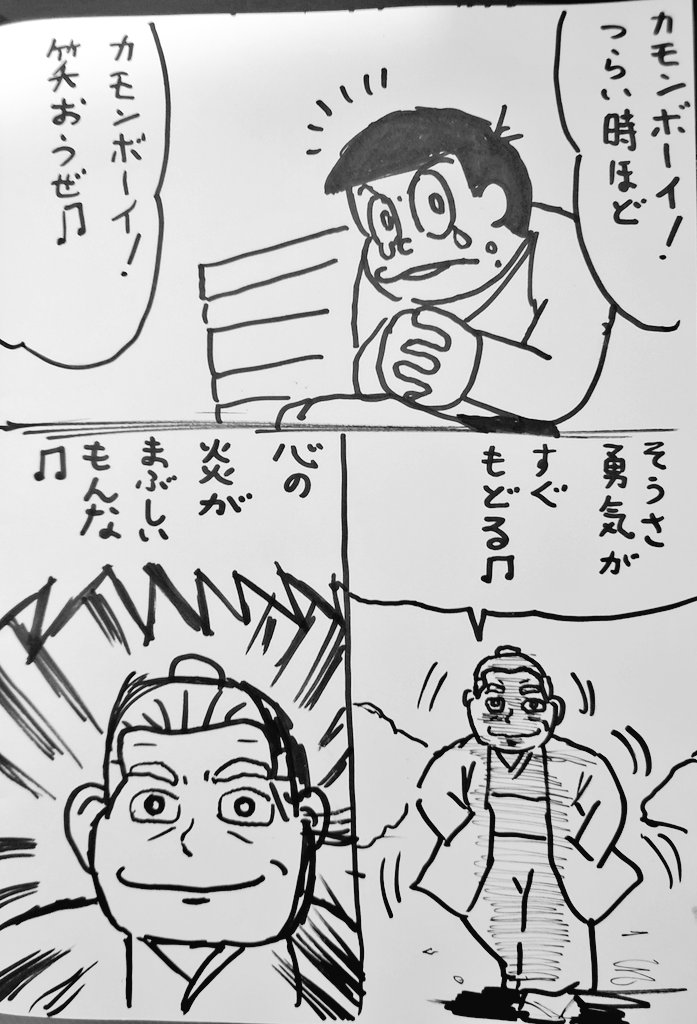 カモンボーイ!
つらい時ほど
カモンボーイ!
笑おうぜ♫
そうさ
勇気が
すぐ
もどる♫
心の
炎が
まぶしい
もんな
♫